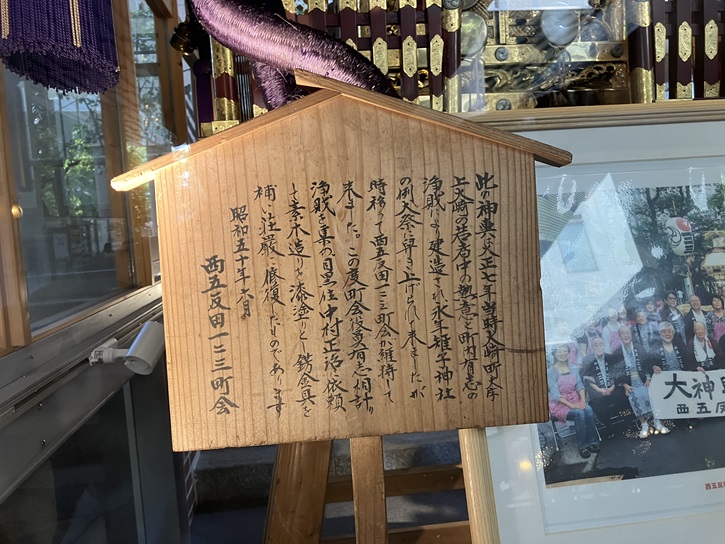 此の神輿は大正七年当時大崎町大字
上大崎の若者中の熱意と町内有志の
浄財により建造され永年雉子神社
の例大祭に舁き上げられて来ましたが
時移りて西五反田一二三町会が維持して
来ました。この度町会役員有志相計り
浄財を集め目黒住中村正治に依頼
して素木造りを漆塗りとし錺金具を
補い荘厳に修復したものであります
昭和五十年六月
西五反田一二三町会
大神
西五反
西五反